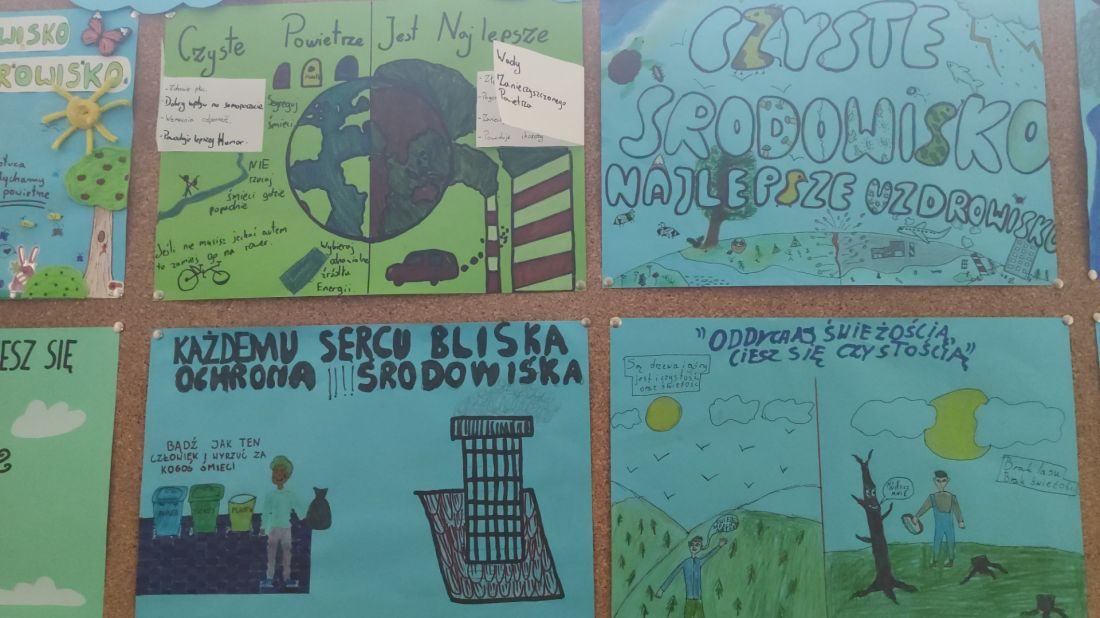 WISKO
ROWISKO
łuca
dychamy
powietrze
Czyste Powietrze Jest Najlepsze
- Zdrowie płuc.
- Dobry wpływ na samopoczucie
- Wzmacnia odporność.
- Powoduje lepszy Humor.
Segreguj
śmieci
Wady
Zanieczyszczonego
Powietrza
- Powoduje choroby
NIE
rzucaj
śmieci gdzie
popadnie
Jeśli nie musisz jechać autem
to zamień go na
rower.
Wybieraj
odnawialne
źródła
Energii.
CZYSTE
ŚRODOWISKO
NAJLEPSZE UZDROWISKO
IESZ SIĘ
KAŻDEMU SERCU BLISKA
OCHRONA !!!! ŚRODOWISKA
BĄDŹ JAK TEN
CZŁOWIEK I WYRZUĆ ZA
KOGOŚ ŚMIECI
"ODDYCHAJ ŚWIEŻOŚCIĄ,
CIESZ SIĘ CZYSTOŚCIĄ"
Są drzewa i góry
jest i czystość
oraz świeżość
Brak lasu
Brak świeżości